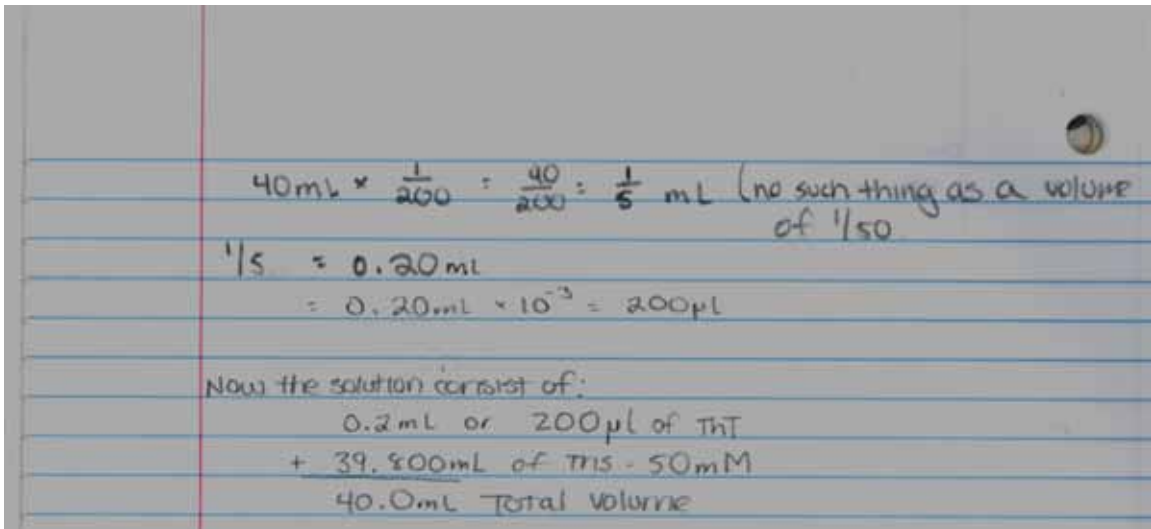 40mL × 1/200 = 40/200 = 1/5 mL (no such thing as a volume
of 1/50
1/5 = 0.20mL
= 0.20mL × 10⁻³ = 200µl
Now the solution consist of:
0.2mL or 200µl of ThT
+ 39.800mL of Tris - 50mM
40.0mL Total volume